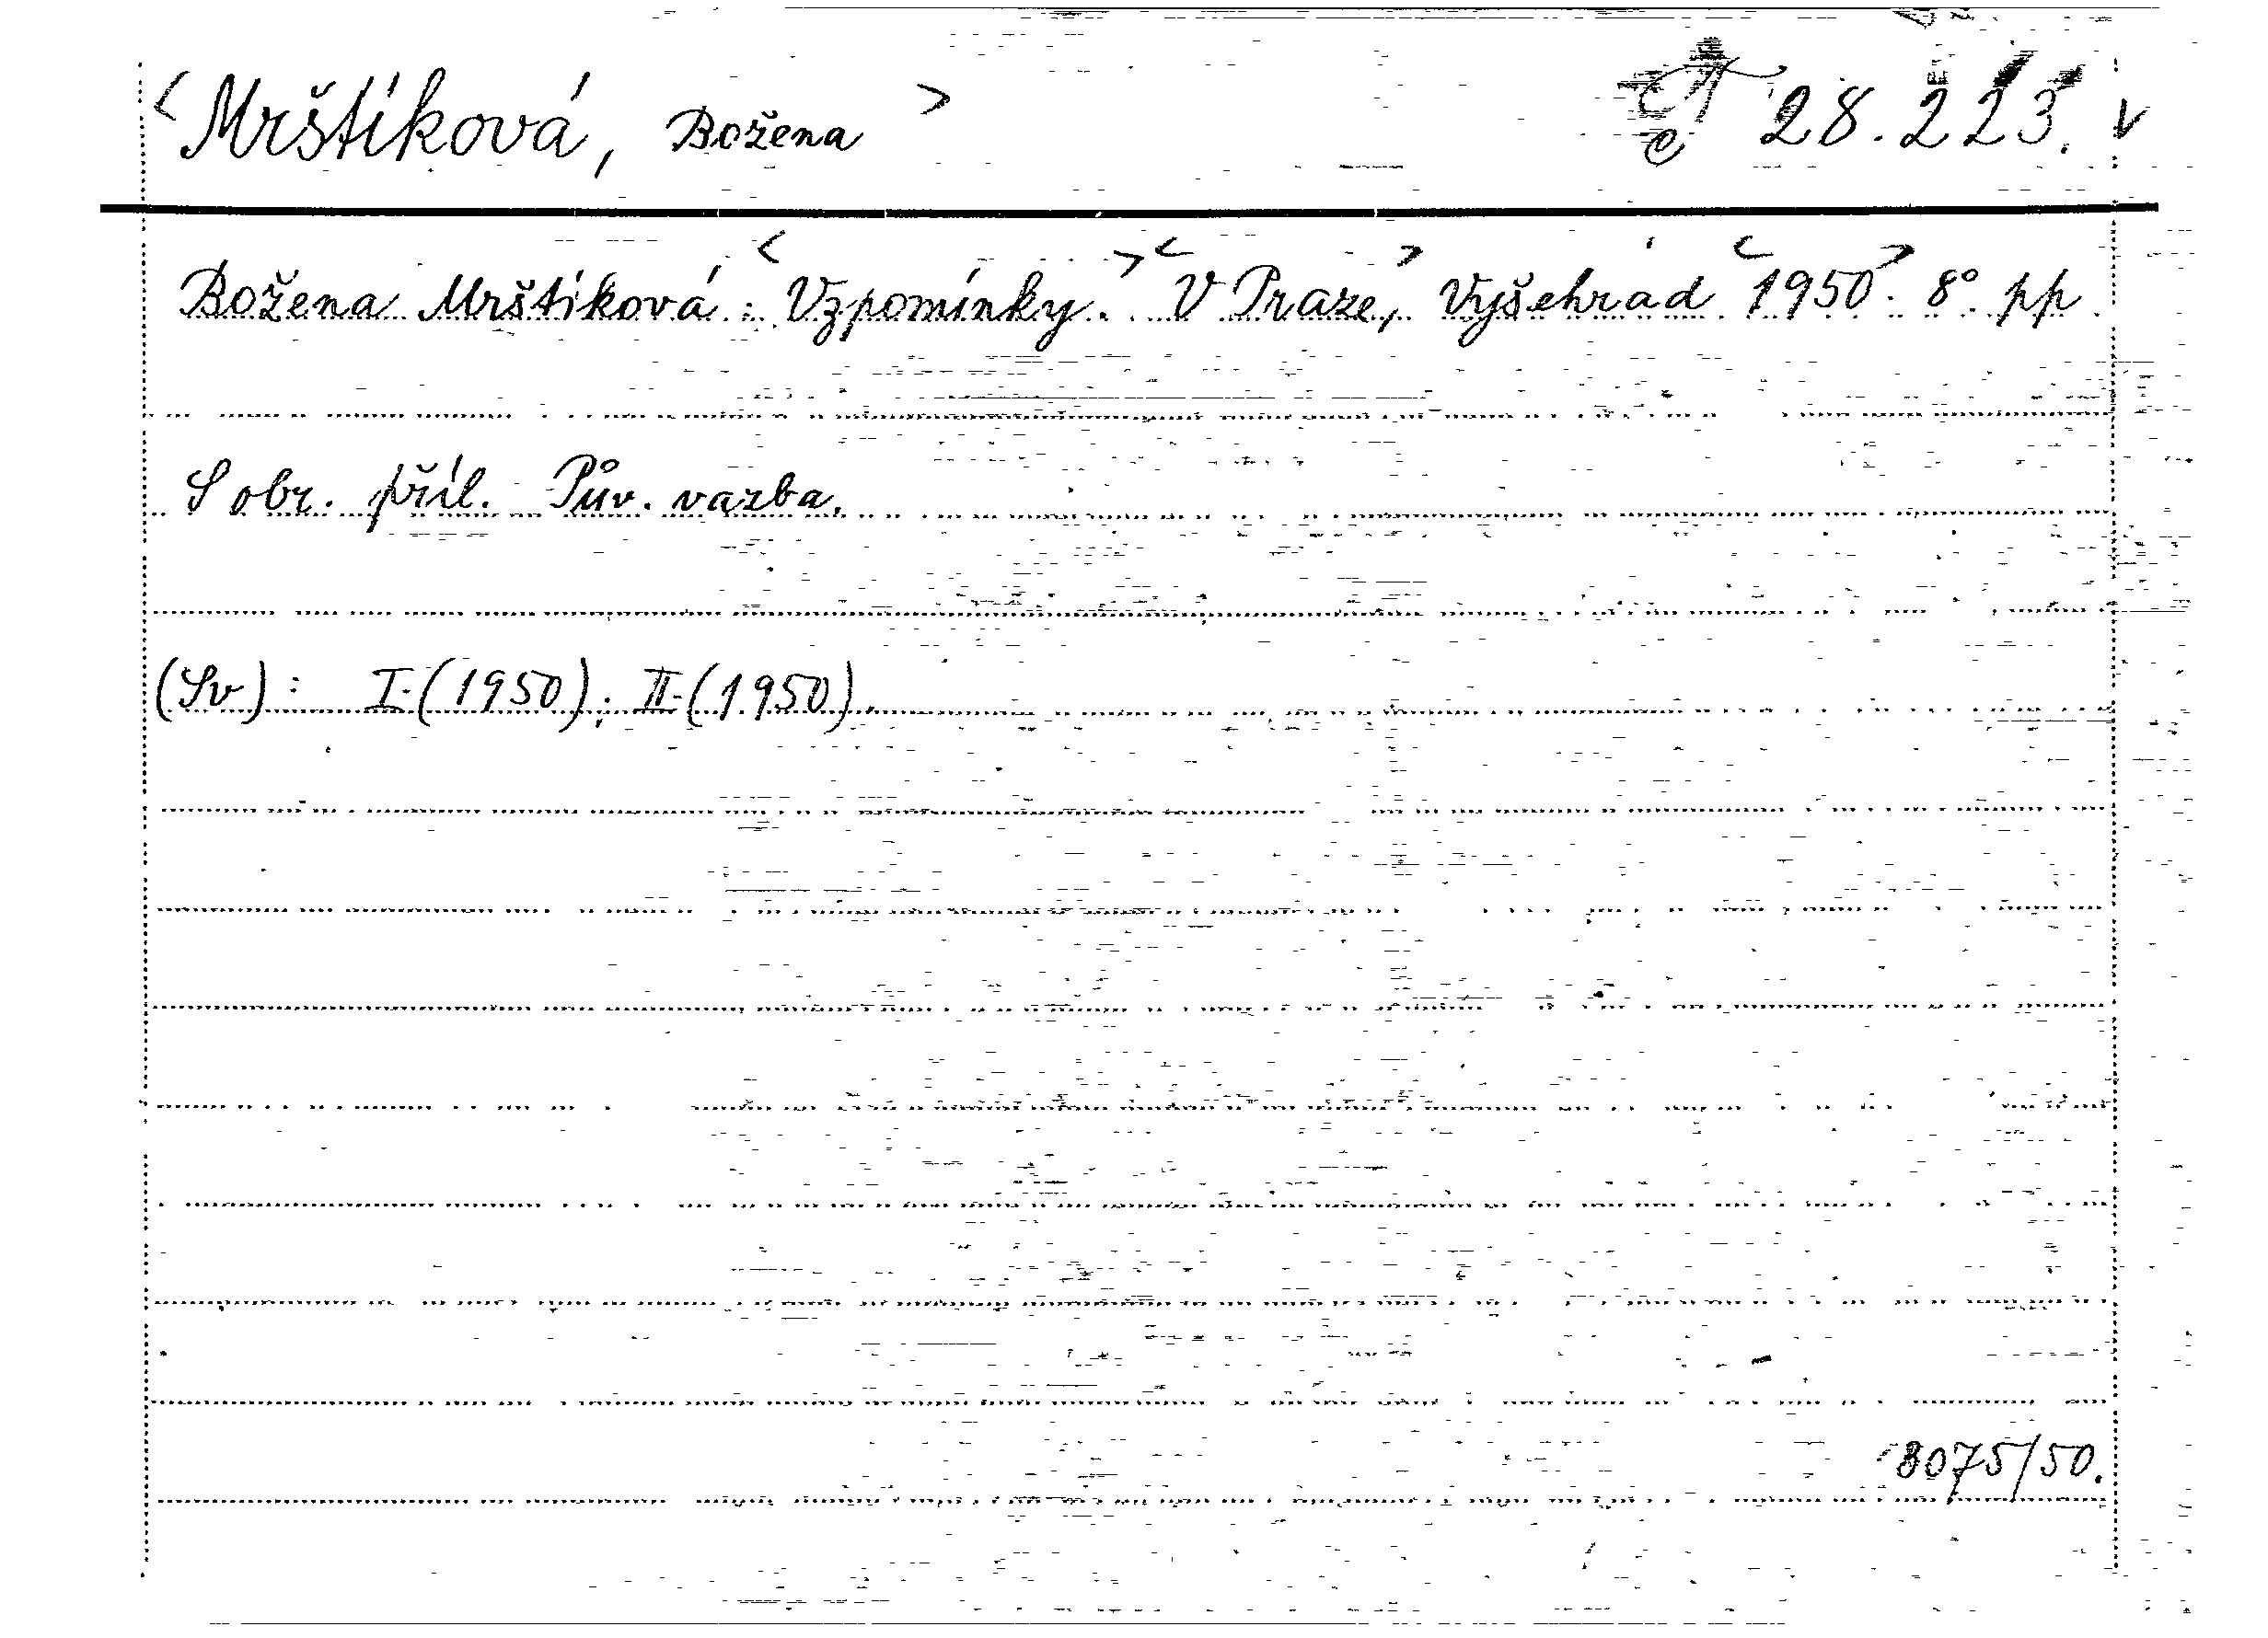 <Mrštíková, Božena> 28.223. v
Božena Mrštíková: <Vzpomínky.> <V Praze,> Vyšehrad <1950>. 8°. pp
S obr. příl. Pův. vazba.
(Sv): I-(1950); II-(1950).
8075/50.